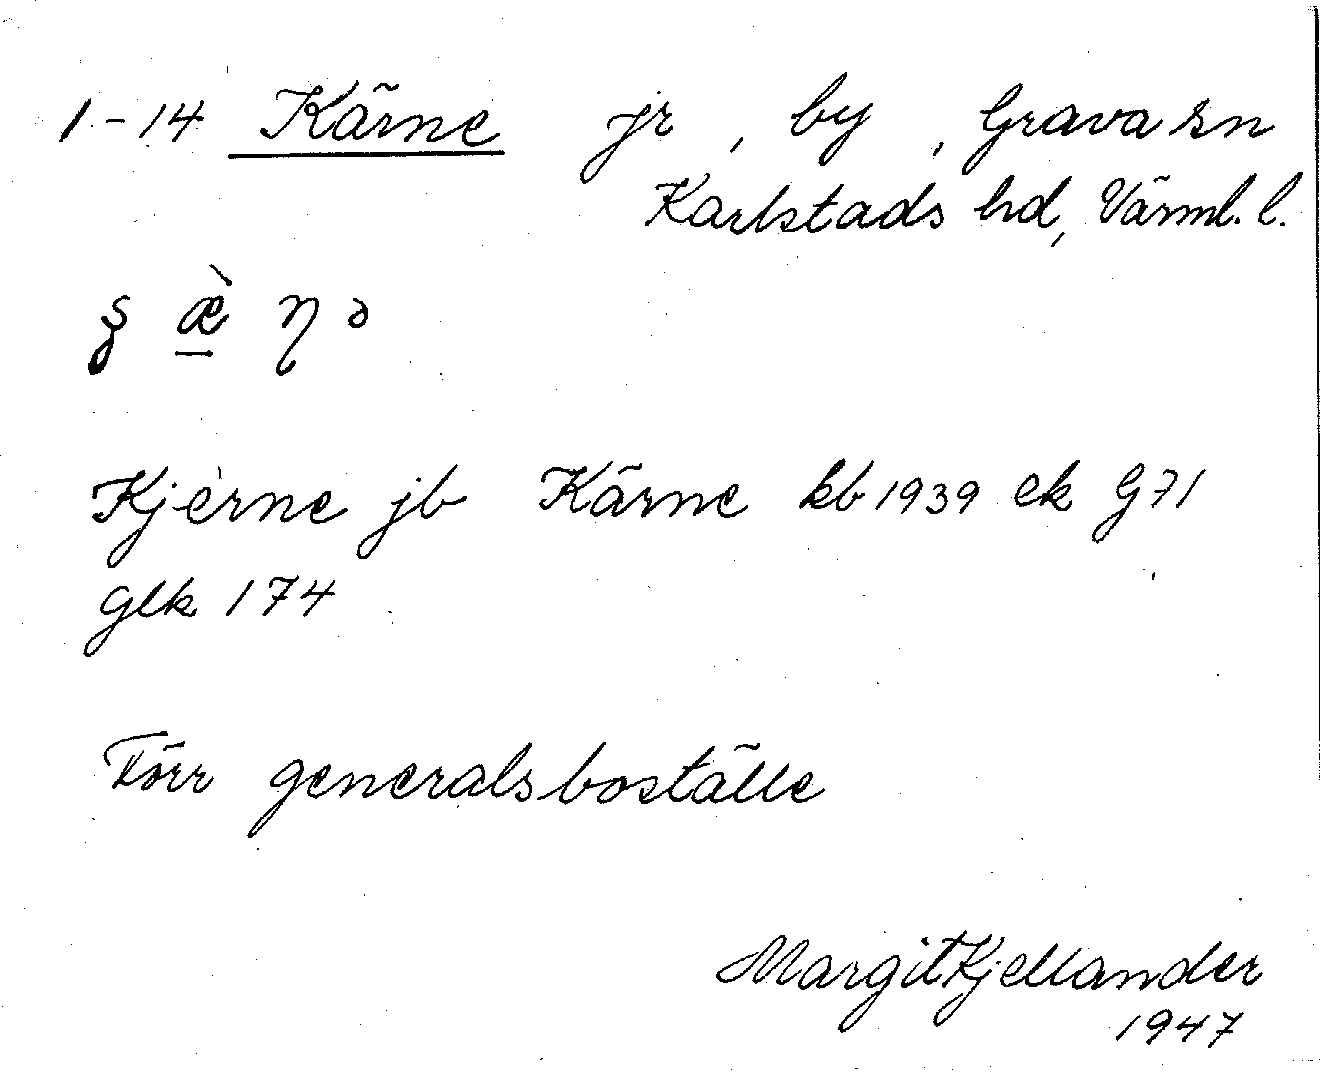 1-14 Kärne jr, by, Grava sn
Karlstads hd, Värml. l.
Kjerne jb Kärne kb 1939 ek G71
glk 174
Förr generalsboställe
Margit Kjellander
1947